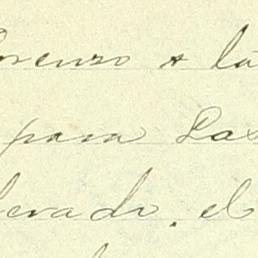 orenzo a la
para Las
levado, el